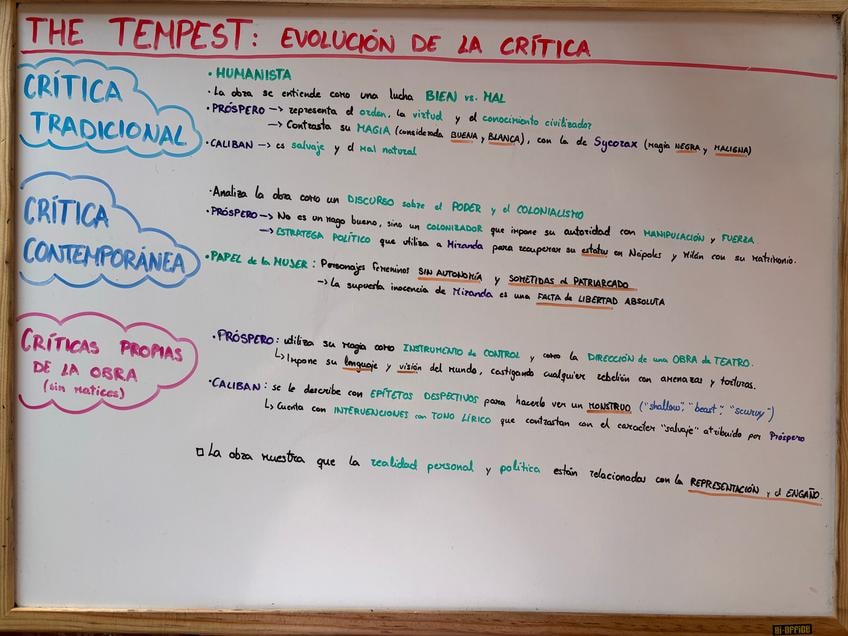 THE TEMPEST: EVOLUCIÓN DE LA CRÍTICA
CRÍTICA
TRADICIONAL
• HUMANISTA
• La obra se entiende como una lucha BIEN vs. MAL
• PRÓSPERO → representa el orden, la virtud y el conocimiento civilizador
→ Contrasta su MAGIA (considerada BUENA y BLANCA), con la de Sycorax (magia NEGRA y MALIGNA)
• CALIBAN → es salvaje y el mal natural
CRÍTICA
CONTEMPORÁNEA
• Analiza la obra como un DISCURSO sobre el PODER y el COLONIALISMO
• PRÓSPERO → No es un mago bueno, sino un COLONIZADOR que impone su autoridad con MANIPULACIÓN y FUERZA
→ ESTRATEGA POLÍTICO que utiliza a Miranda para recuperar su estatus en Nápoles y Milán con su matrimonio.
• PAPEL de la MUJER: Personajes femeninos SIN AUTONOMÍA y SOMETIDAS al PATRIARCADO
→ La supuesta inocencia de Miranda es una FALTA de LIBERTAD ABSOLUTA
CRÍTICAS PROPIAS
DE LA OBRA
(sin matices)
• PRÓSPERO: utiliza su magia como INSTRUMENTO de CONTROL y como la DIRECCIÓN de una OBRA de TEATRO.
↳ Impone su lenguaje y visión del mundo, castigando cualquier rebelión con amenazas y torturas.
• CALIBAN: se le describe con EPÍTETOS DESPECTIVOS para hacerlo ver un MONSTRUO ("shallow", "beast", "scurvy")
↳ Cuenta con INTERVENCIONES con TONO LÍRICO que contrastan con el caracter "salvaje" atribuido por Próspero
□ La obra muestra que la realidad personal y política están relacionadas con la REPRESENTACIÓN y el ENGAÑO.
Bi-OFFICE